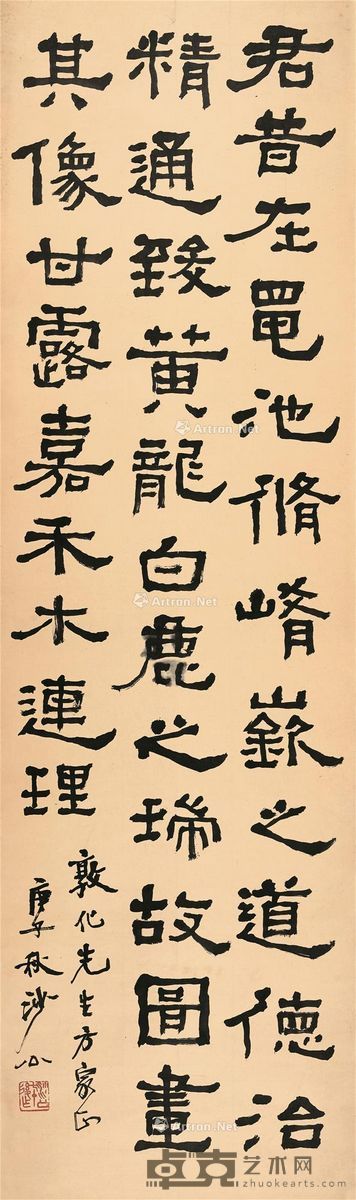 君昔在黽池脩崤嶔之道德治
精通致黃龍白鹿之瑞故圖畫
其像甘露嘉禾木連理
敦化先生方家正
庚子秋沙
Artron.Net
Artron.Net
Artron.Net
Artron.Net
卓克艺术网
zhuokearts.com